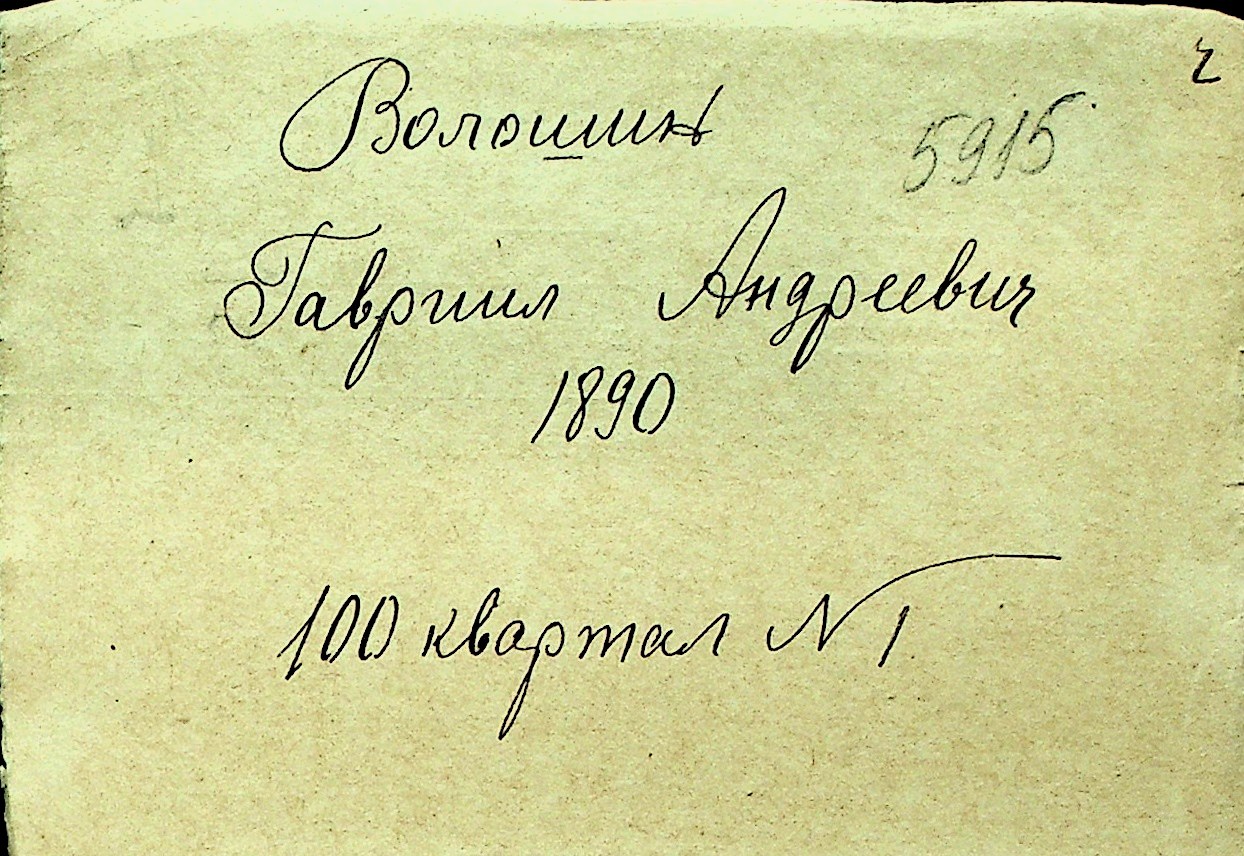 ч
Волошин 5915
Гавриил Андреевич
1890
100 квартал № 1